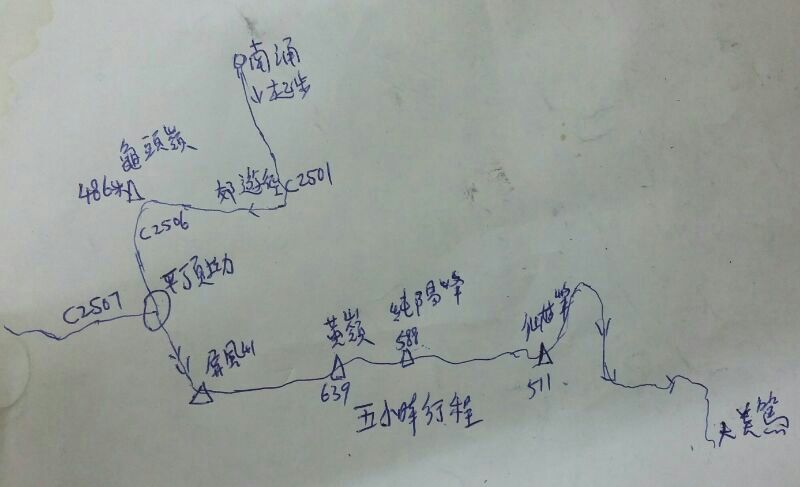 南涌
起步
龜頭嶺
486米
郊遊徑
C2501
C2506
平頂坳
C2507
屏風山
黃嶺
639
純陽峰
589
仙姑峰
511
五小時行程
大美篤